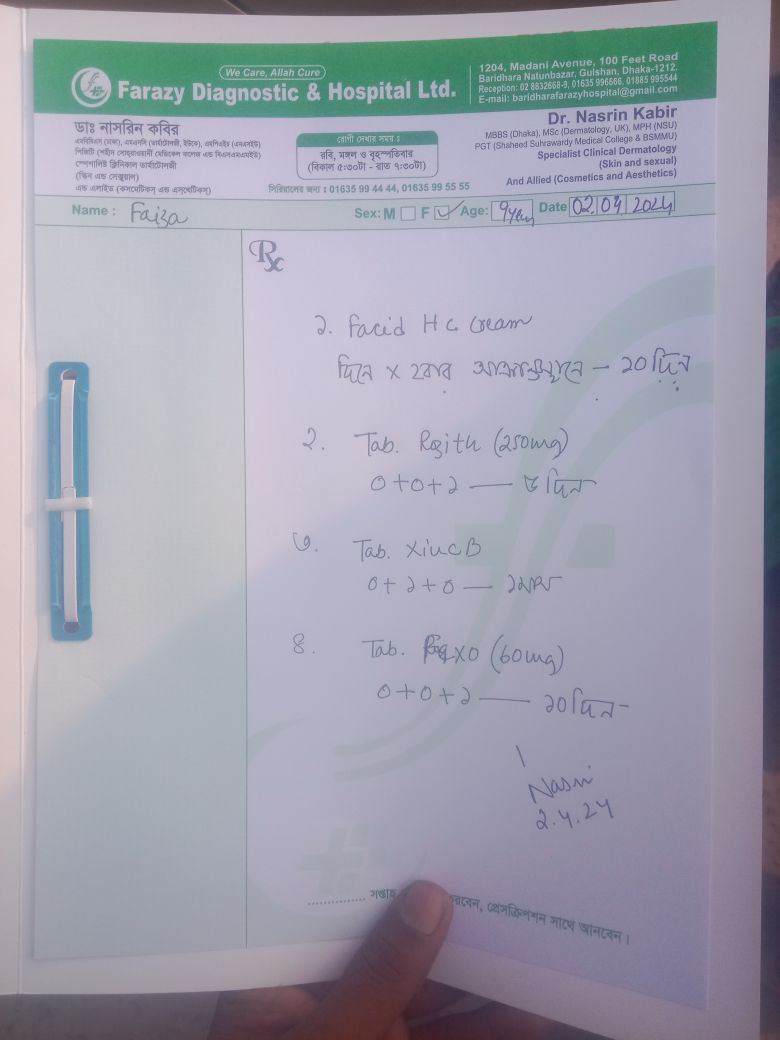 We Care, Allah Cure
Farazy Diagnostic & Hospital Ltd.
1204, Madani Avenue, 100 Feet Road
Baridhara Natunbazar, Gulshan, Dhaka-1212.
Reception: 02 8832668-9, 01635 996666, 01885 995544
E-mail: baridharafarazyhospital@gmail.com
ডাঃ নাসরিন কবির
এমবিবিএস (ঢাকা), এমএসসি (ডার্মাটোলজী, ইউকে), এমপিএইচ (এনএসইউ)
পিজিটি (শহীদ সোহরাওয়ার্দী মেডিকেল কলেজ এন্ড বিএসএমএমইউ)
স্পেশালিষ্ট ক্লিনিকাল ডার্মাটোলজী
(স্কিন এন্ড সেক্সুয়াল)
এন্ড এলাইড (কসমেটিকস্ এন্ড এস্থেটিকস্)
রোগী দেখার সময় ঃ
রবি, মঙ্গল ও বৃহস্পতিবার
(বিকাল ৫:৩০টা - রাত ৭:৩০টা)
সিরিয়ালের জন্য : 01635 99 44 44, 01635 99 55 55
Dr. Nasrin Kabir
MBBS (Dhaka), MSc (Dermatology, UK), MPH (NSU)
PGT (Shaheed Suhrawardy Medical College & BSMMU)
Specialist Clinical Dermatology
(Skin and sexual)
And Allied (Cosmetics and Aesthetics)
Name : Faiza Sex: M F Age: 9 Date 02 04 2024
Rx
১. Facid HC Cream
দিনে x ২বার আক্রান্তস্থানে — ১০ দিন
২. Tab. (250mg)
0+0+১ — দিন
৩. Tab. Xinc B
0+১+0 — ১মাস
৪. Tab. (60mg)
0+0+১ — ১০ দিন
2.4.24
সপ্তাহ করবেন, প্রেসক্রিপশন সাথে আনবেন।